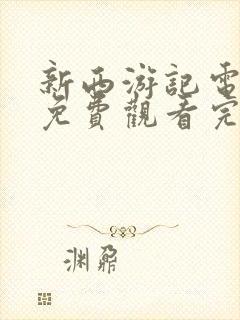 新西游記電
免費觀看完
渊鼐